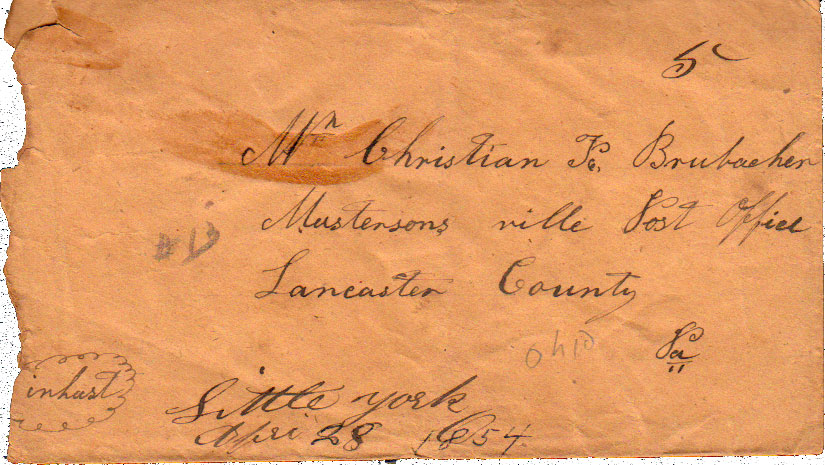 5
Mr Christian B. Brubacher
Mastersons ville Post Office
Lancaster County
Pa
Ohio
inhast
Little york
April 28 1854